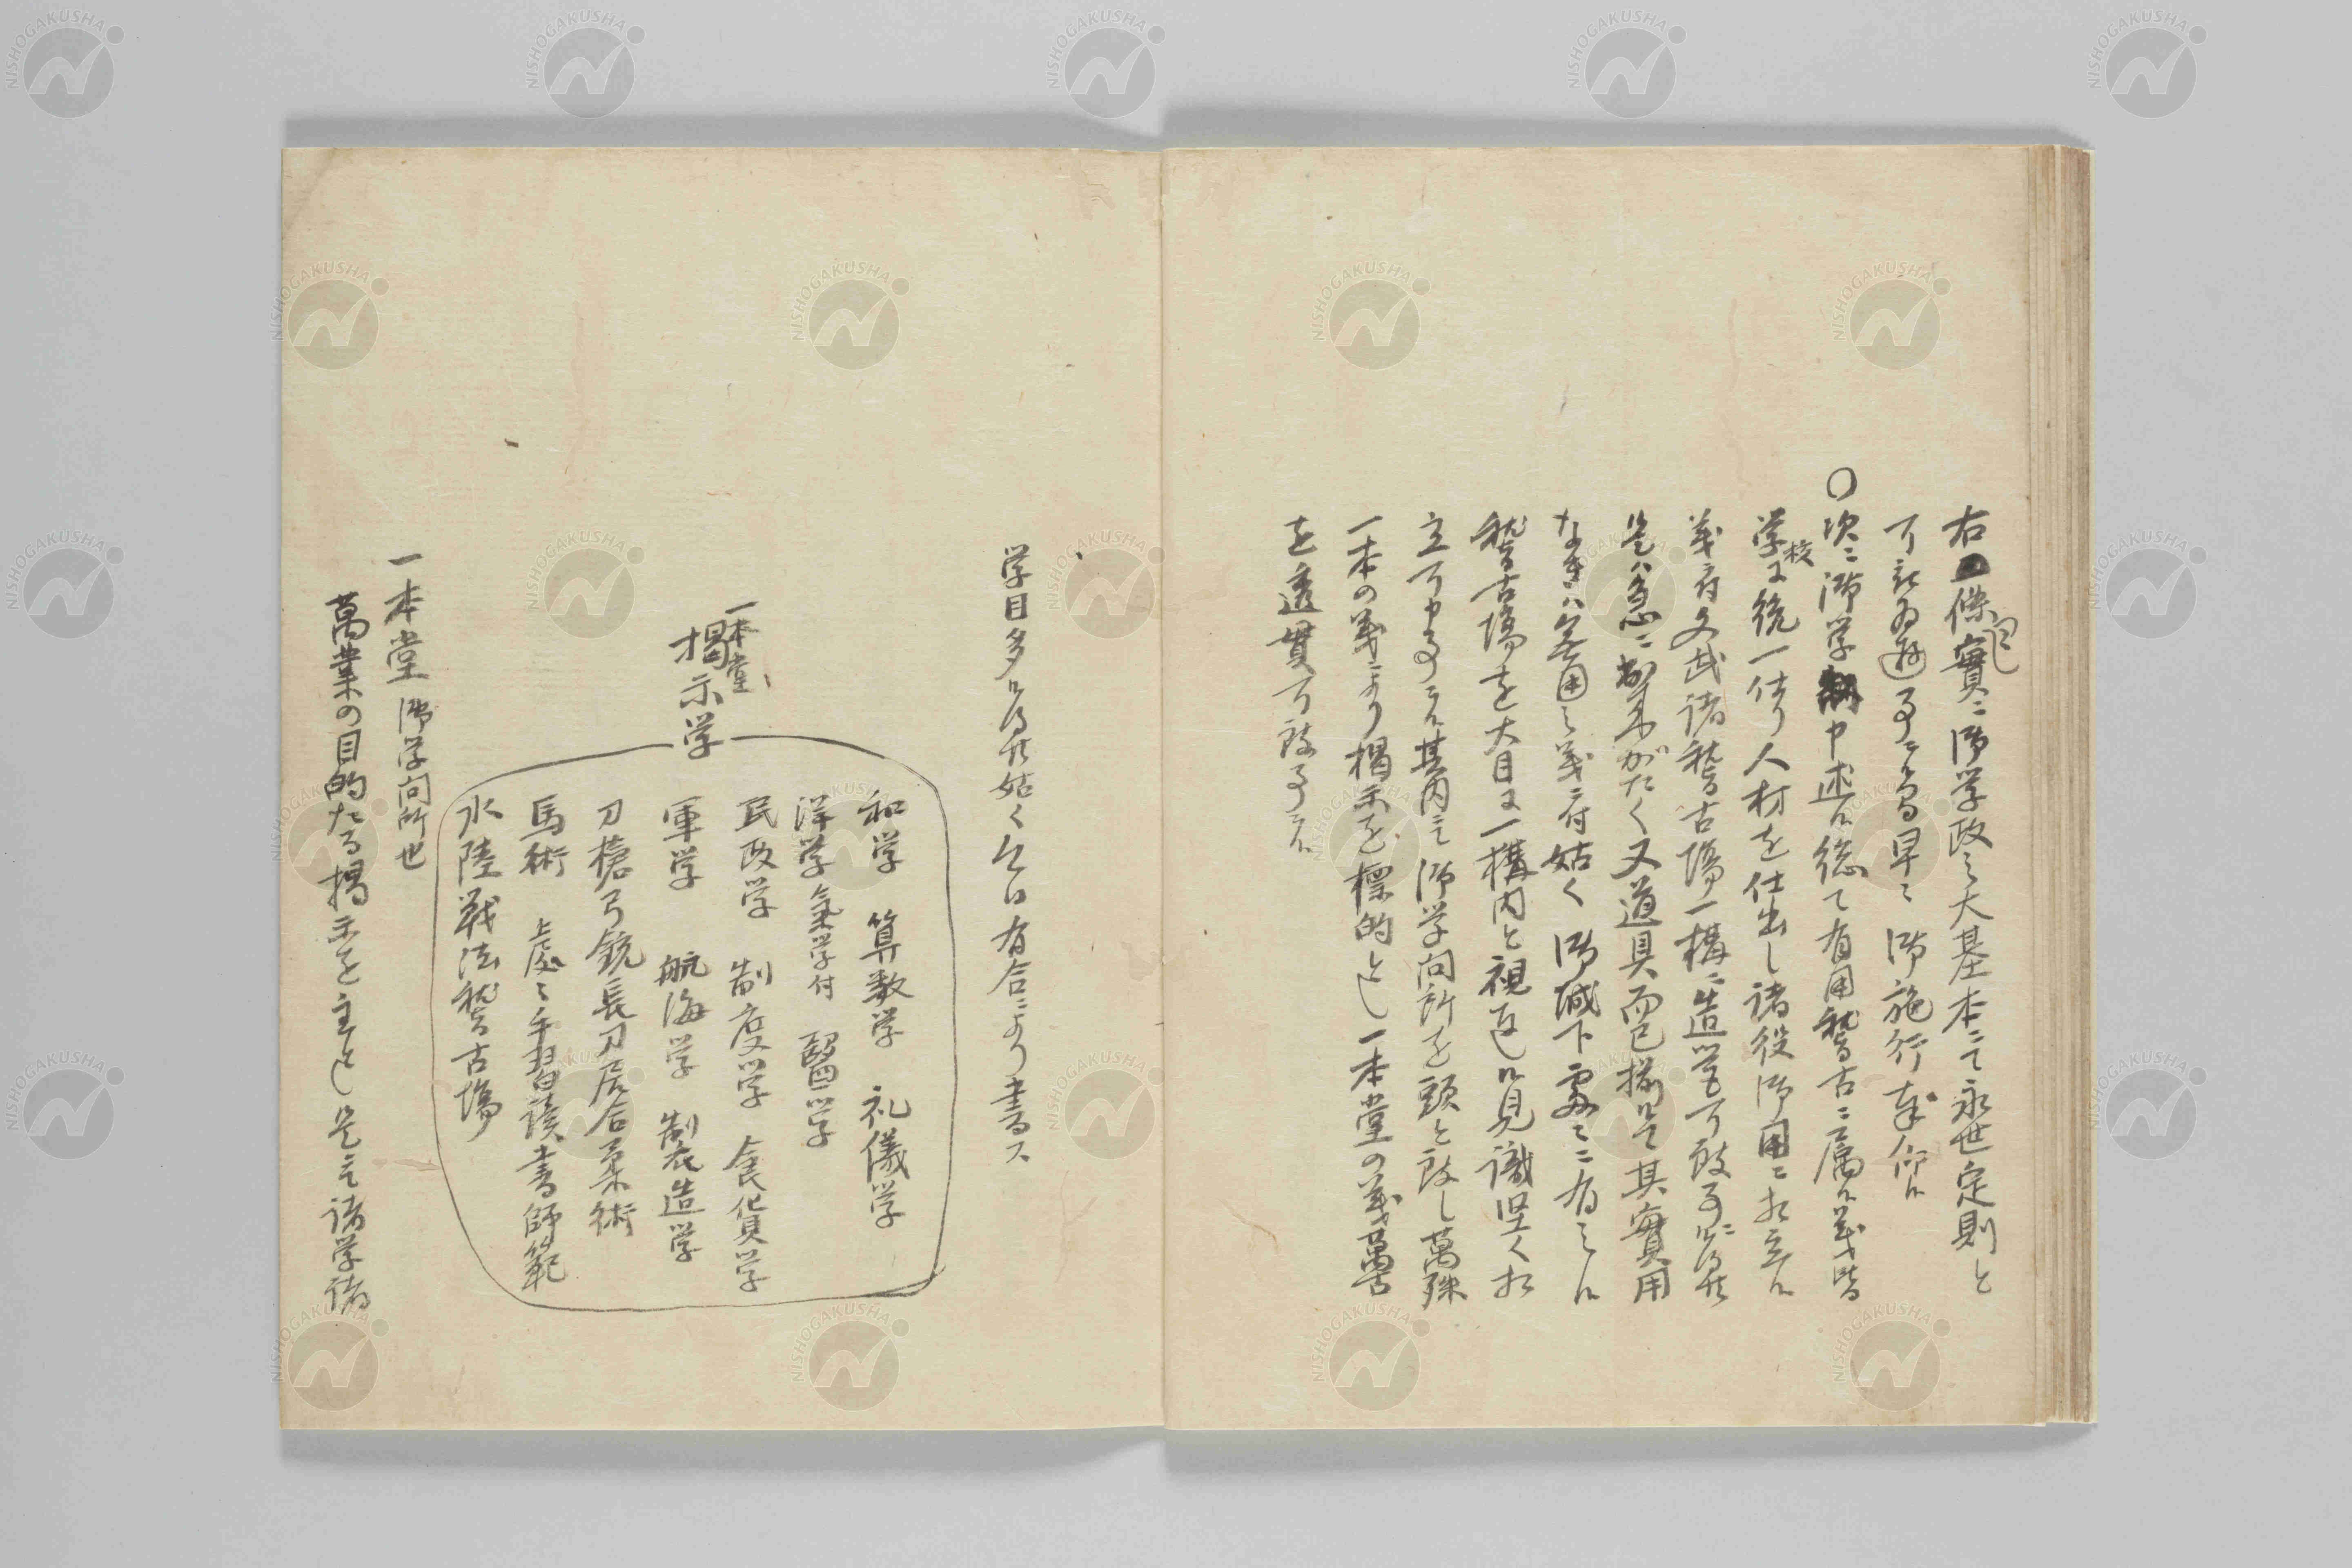 右 條實ニ御学政之大基本ニ而永世定則と
可被為遊事ニ候間早々御施行奉仰候
○次ニ御学 中述候総て有用稽古ニ属候義皆
学校ニ統一仕リ人材を仕出し諸役御用ニ相立候
義ニ付文武諸稽古場一構ニ造営可致事ニ候得共
是ハ急ニ出来がたく又道具而已揃候て其實用
なきハ無用之義ニ付姑く御城下處々ニ有之候
稽古場を大目ニ一構内と視返し候見識堅く相
立可申事ニ候其内ニ御学問所を頭と致し萬殊
一本の義ニより掲示を標的とし一本堂の義萬古
を透貫可致事ニ候
学目多候得共姑く今日有合ニより書ス
一本堂
掲示学
和学 算数学 礼儀学
洋学 氣学付 醫学
民政学 制度学 食貨学
軍学 航海学 製造学
刀槍弓銃長刀居合柔術
馬術 上處々手習読書師範
水陸戦法稽古場
一本堂 御学問所也
萬業の目的たる掲示を主とし是ニ諸学諸
NISHOGAKUSHA